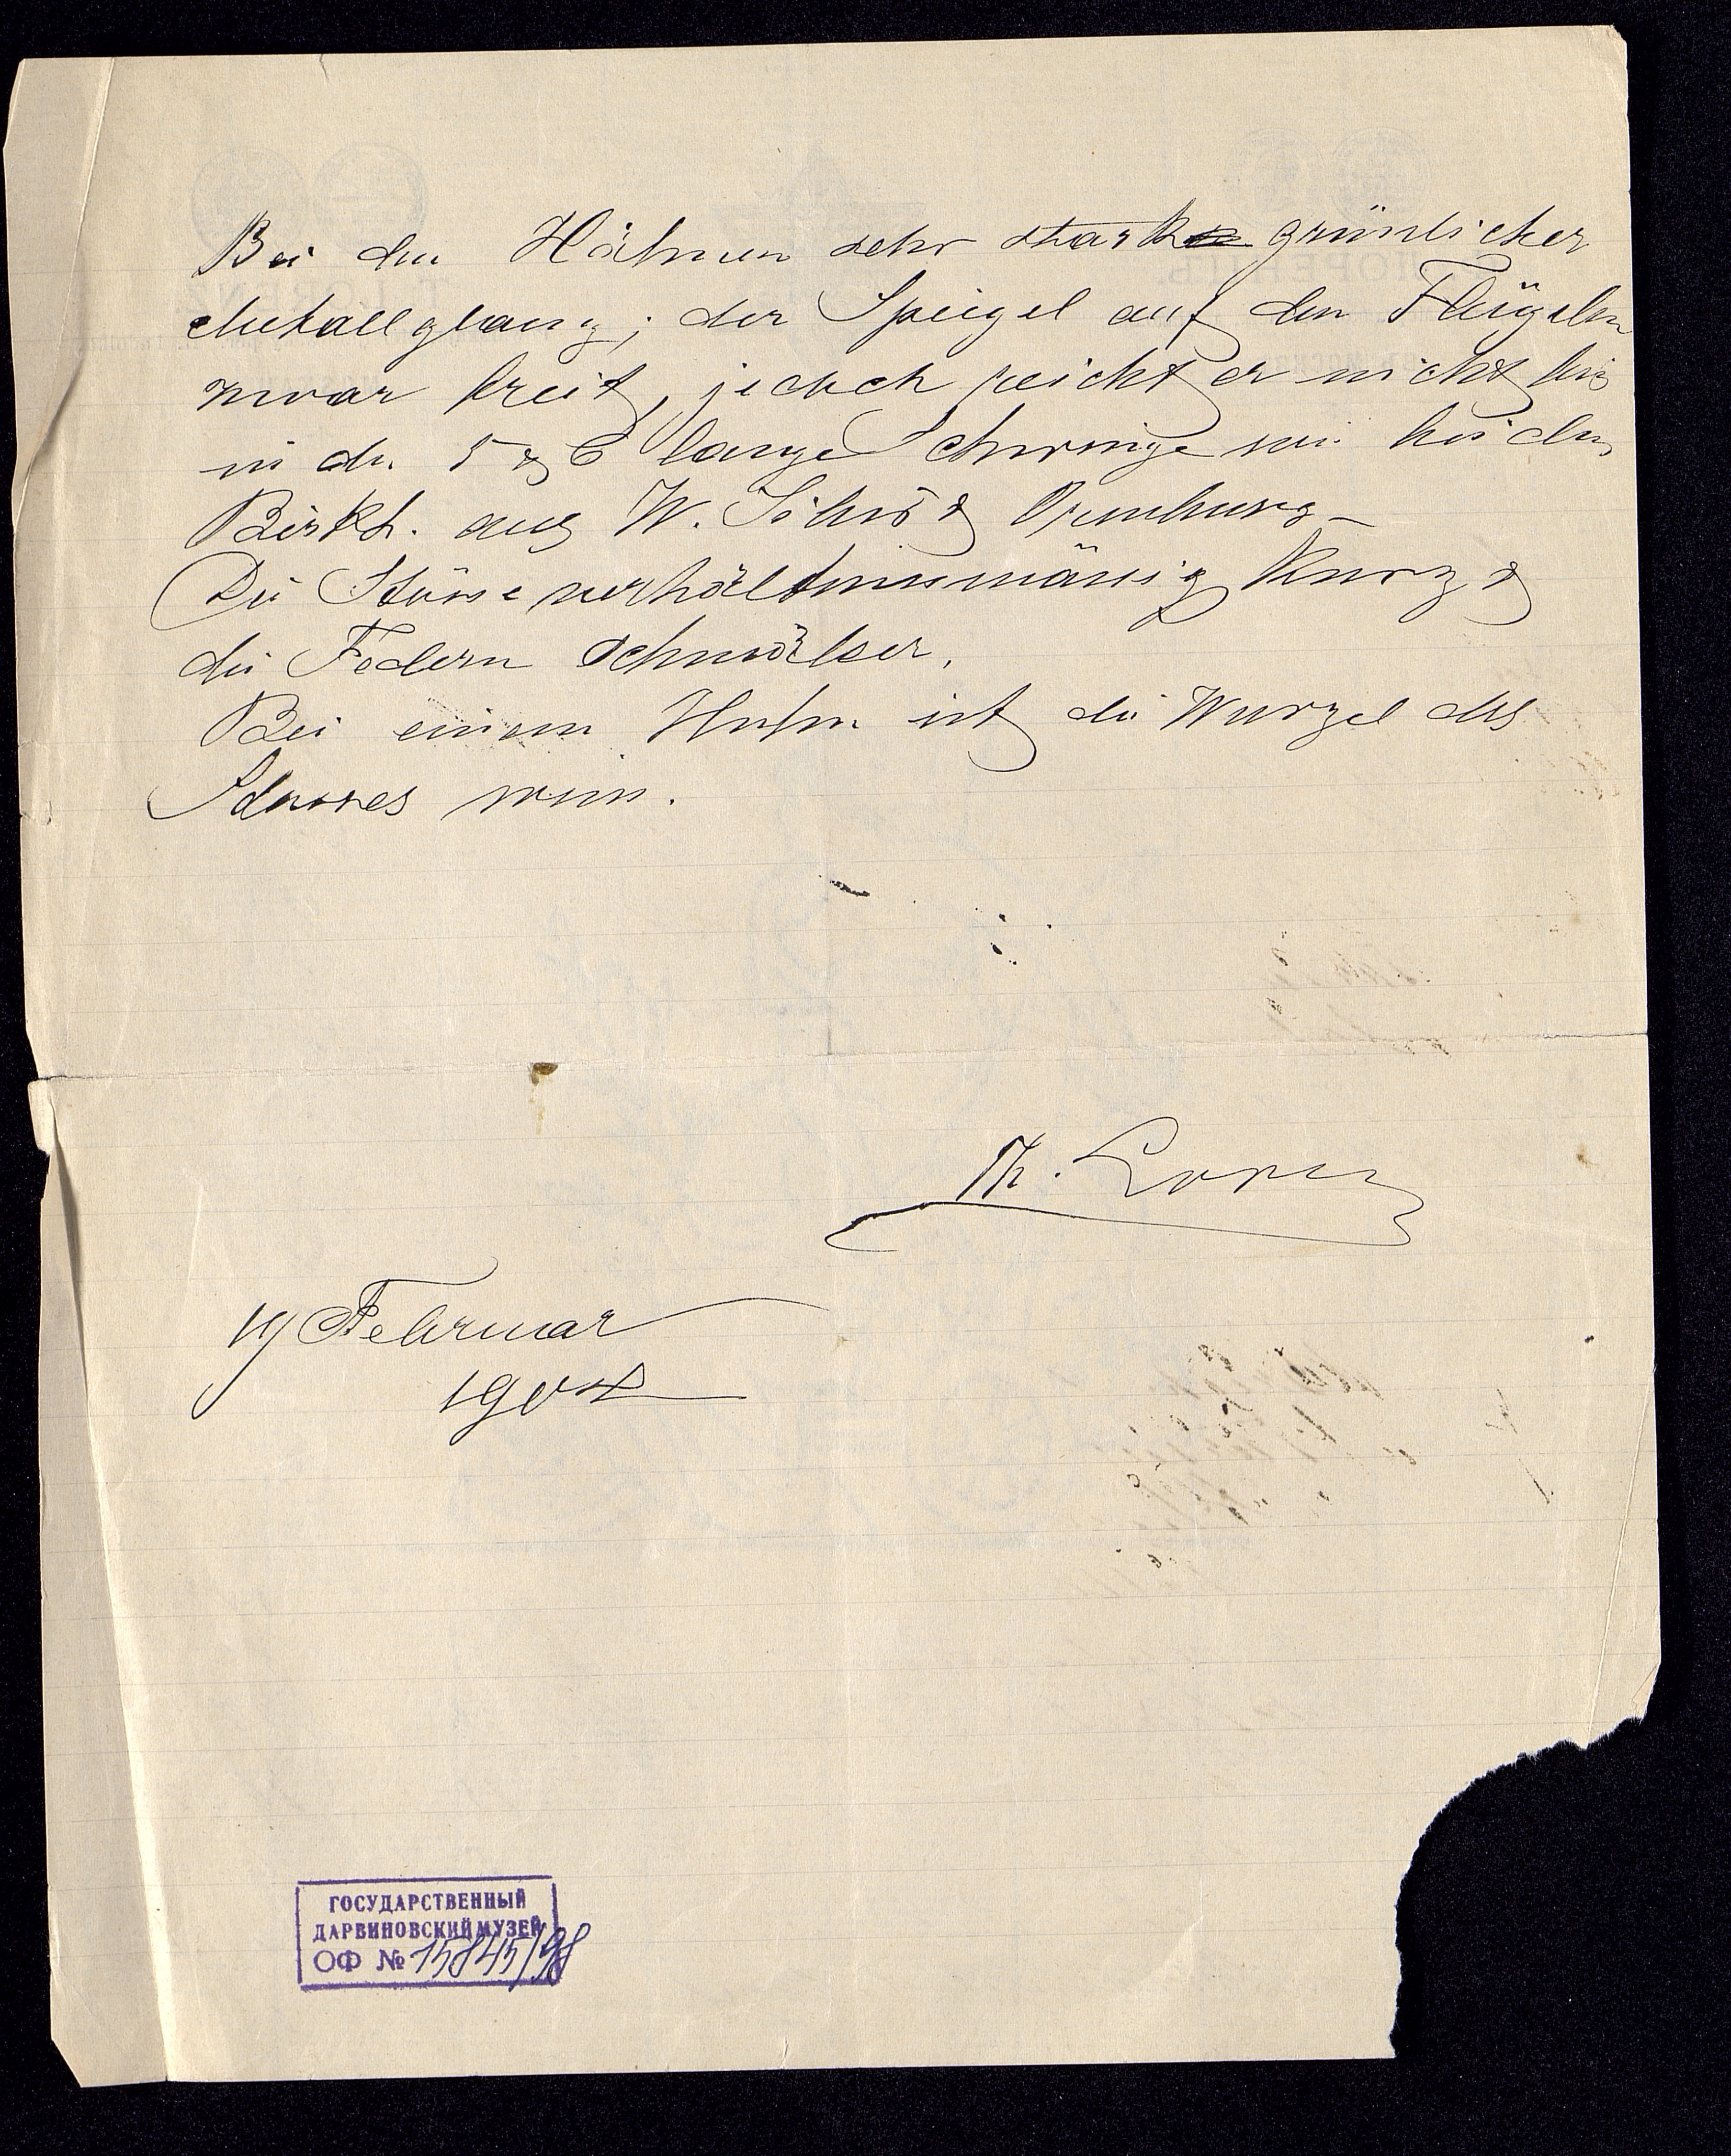 Bei den Hähnen sehr stark grünlicher
Metallglanz; der Spiegel auf den Flügeln
zwar breit, jedoch reicht er nicht bis
in die 5 & 6 lange Schwinge wie bei den
Birkh. aus W. Sibir & Orenburg –
Die Stösse verhältnissmässig kurz &
die Federn schmäler.
Bei einem Huhn ist die Wurzel des
Stosses weiss.
Th. Lorenz
19 Februar
1904
ГОСУДАРСТВЕННЫЙ
ДАРВИНОВСКИЙ МУЗЕЙ
ОФ № 15845/98